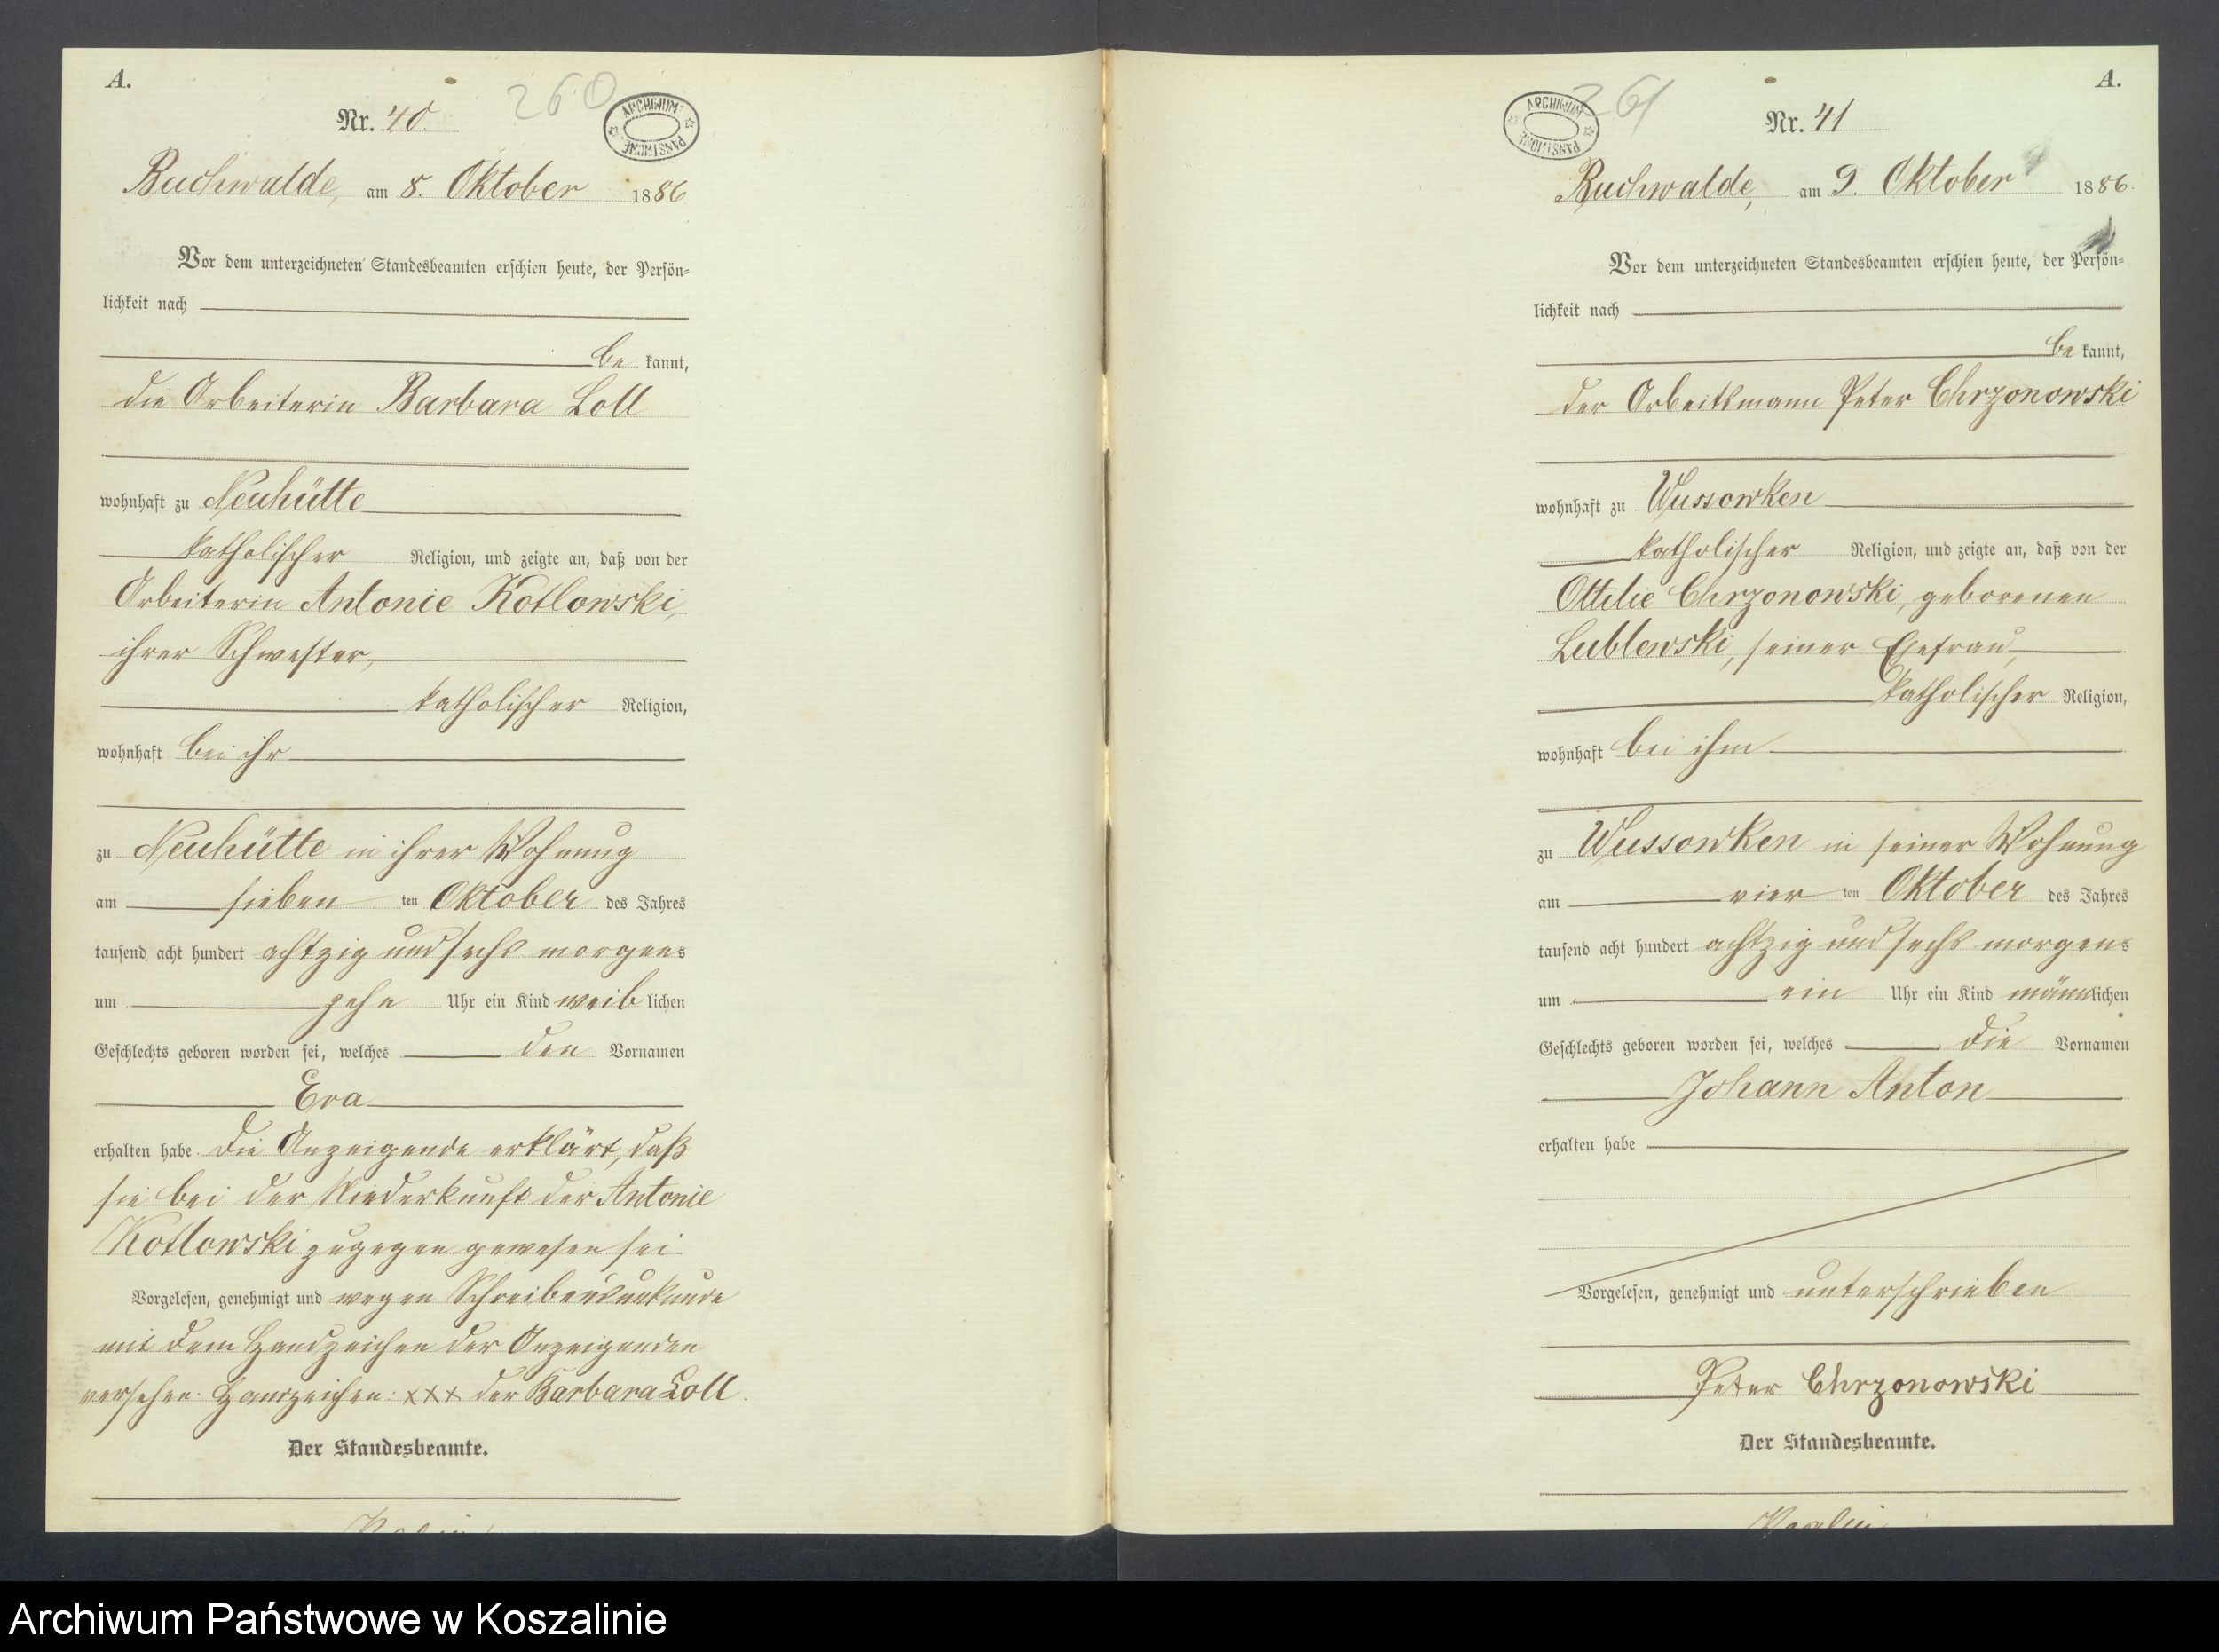 A.
260
Nr. 40.
ARCHIWUM PAŃSTWOWE
Buchwalde, am 8. Oktober 1886
Vor dem unterzeichneten Standesbeamten erschien heute, der Persön=
lichkeit nach
be kannt,
die Arbeiterin Barbara Loll
wohnhaft zu Neuhütte
katholischer Religion, und zeigte an, daß von der
Arbeiterin Antonie Kotlowski,
ihrer Schwester,
katholischer Religion,
wohnhaft bei ihr
zu Neuhütte in ihrer Wohnung
am sieben ten Oktober des Jahres
tausend acht hundert achtzig und sechs morgens
um zehn Uhr ein Kind weib lichen
Geschlechts geboren worden sei, welches den Vornamen
Eva
erhalten habe. Die Anzeigende erklärt, daß
sie bei der Niederkunft der Antonie
Kotlowski zugegen gewesen sei
Vorgelesen, genehmigt und wegen Schreibensunkunde
mit dem Handzeichen der Anzeigenden
versehen. Handzeichen: xxx der Barbara Loll.
Der Standesbeamte.
A.
261
Nr. 41
ARCHIWUM PAŃSTWOWE
Buchwalde, am 9. Oktober 1886.
Vor dem unterzeichneten Standesbeamten erschien heute, der Persön=
lichkeit nach
be kannt,
der Arbeitsmann Peter Chrzonowski
wohnhaft zu Wussowken
katholischer Religion, und zeigte an, daß von der
Ottilie Chrzonowski, geborenen
Lublewski, seiner Ehefrau,
katholischer Religion,
wohnhaft bei ihm
zu Wussowken in seiner Wohnung
am vier ten Oktober des Jahres
tausend acht hundert achtzig und sechs morgens
um ein Uhr ein Kind männlichen
Geschlechts geboren worden sei, welches die Vornamen
Johann Anton
erhalten habe
Vorgelesen, genehmigt und unterschrieben
Peter Chrzonowski
Der Standesbeamte.
Archiwum Państwowe w Koszalinie